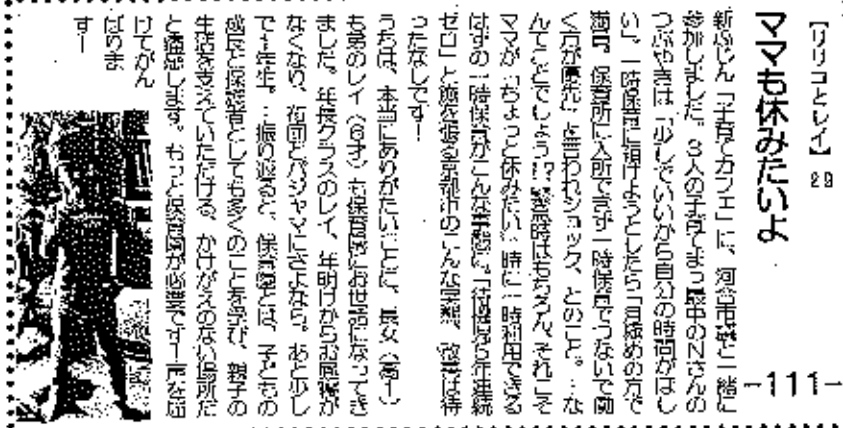 【リリコとレイ】 29
ママも休みたいよ
-111-
新ふじん「子育てカフェ」に、河合市議と一緒に
参加しました。3人の子育てまっ最中のNさんの
つぶやきは「少しでいいから自分の時間がほし
い」。一時保育に預けようとしたら「月極めの方で
満員。保育所に入所できず一時保育でつないで働
く方が優先」と言われショック、とのこと。…な
んてことでしょう!?緊急時はもちろん、それこそ
ママが「ちょっと休みたい」時に一時利用できる
はずの一時保育がこんな事態に。「待機児5年連続
ゼロ」と旗を振る京都市のこんな実態、改善は待
ったなしです!
うちは、本当にありがたいことに、長女(高1)
も弟のレイ(6才)も保育園にお世話になってき
ました。年長クラスのレイ、年明けからお昼寝が
なくなり、布団とパジャマにさよなら。あと少し
で1年生。…振り返ると、保育園とは、子どもの
成長と保護者としても多くのことを学び、親子の
生活を支えていただける、かけがえのない場所だ
と痛感します。もっと保育園が必要です!声を届
けてがん
ばりま
すー